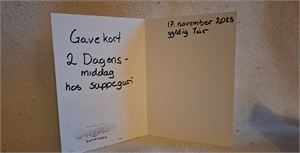 Gavekort
2 Dagens-
middag
hos suppeguri
17. november 2023
gyldig 1 år